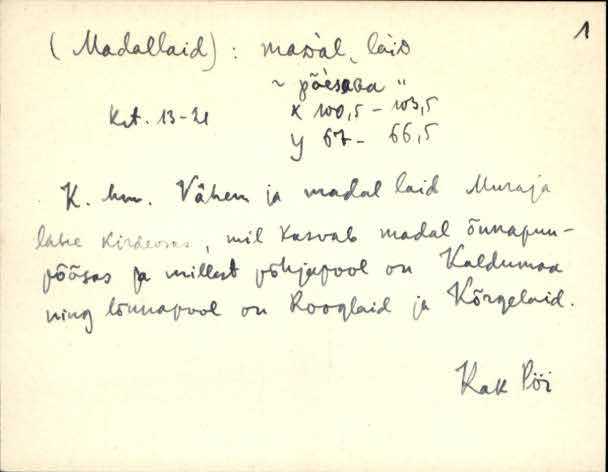 1
(Madallaid) : mad̀al, laid
~ põesaɒa "
Krt. 13-21 x 100,5 - 103,5
y 67 - 66,5
K. hm. Vähem ja madal laid Muraja
lahe kirdeosas, mil kasvab madal õunapuu-
põõsas ja millest põhjapool on Kaldumaa
ning lõunapool on Rooglaid ja Kõrgelaid.
Kak Pöi